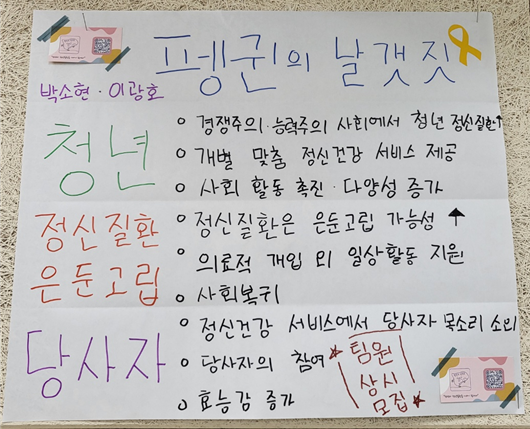 펭귄의 날갯짓
박소현·이광호
청년
경쟁주의·능력주의 사회에서 청년 정신질환↑
개별 맞춤 정신건강 서비스 제공
사회 활동 촉진·다양성 증가
정신질환
은둔고립
정신질환은 은둔고립 가능성 ↑
의료적 개입 외 일상활동 지원
사회복귀
당사자
정신건강 서비스에서 당사자 목소리 소외
당사자의 참여
효능감 증가
★팀원
상시
모집★